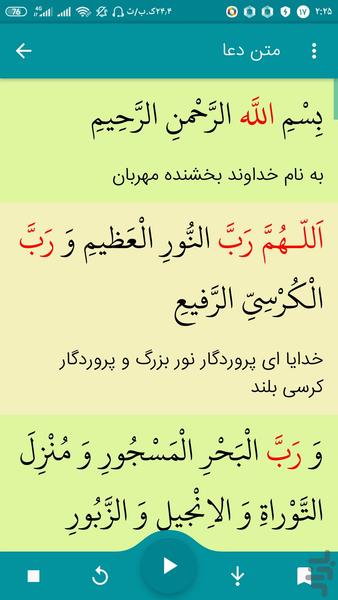 76 4G ۲۴٫۴ک.ب/ث ۱۷ ۲:۲۵
متن دعا
بِسْمِ اللَّه الرَّحْمنِ الرَّحیمِ
به نام خداوند بخشنده مهربان
اَللّـهُمَّ رَبَّ النُّورِ الْعَظیمِ وَ رَبَّ
الْکُرْسِیِّ الرَّفیعِ
خدایا ای پروردگار نور بزرگ و پروردگار
کرسی بلند
وَ رَبَّ الْبَحْرِ الْمَسْجُورِ وَ مُنْزِلَ
التَّوْراةِ وَ الاِنْجیلِ وَ الزَّبُورِ
بازار